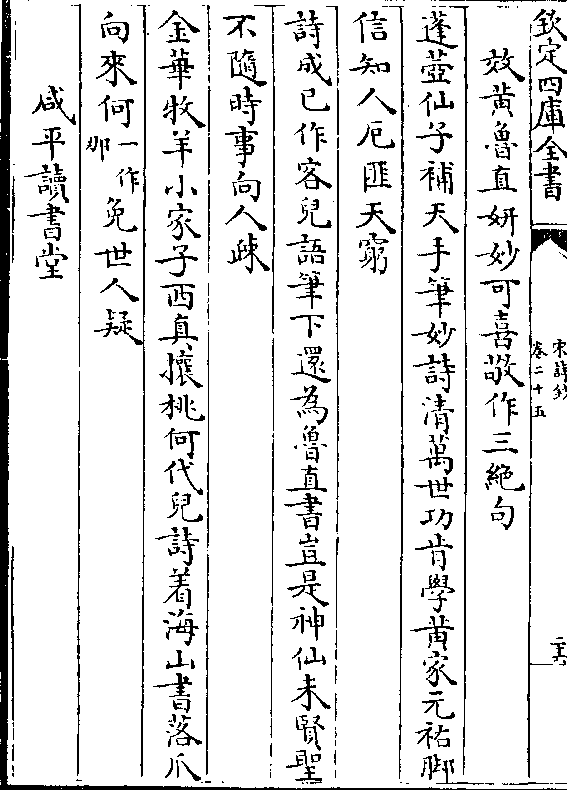 欽定四庫全書
宋詩鈔
卷二十五
效黄魯直妍妙可喜敬作三絶句
蓬壺仙子補天手筆妙詩清萬世功肯學黄家元祐脚
信知人厄匪天窮
詩成已作客兒語筆下還為魯直書豈是神仙未賢聖
不隨時事向人疎
金華牧羊小家子西真攘桃何代兒詩着海山書落爪
向來何一作那免世人疑
咸平讀書堂